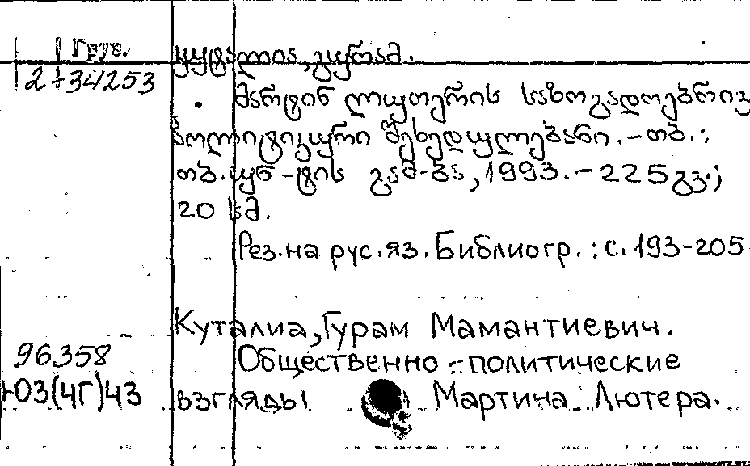 Груз. კუტალია, გურამ.
2-34253 მარტინ ლუთერის საზოგადოებრივ
პოლიტიკური შეხედულებანი.-თბ.:
თბ.უნ-ტის გამ-ბა,1993.-225გვ.;
20 სმ.
Рез.на рус.яз.Библиогр.:с.193-205
Куталиа,Гурам Мамантиевич.
96358 Общественно-политические
Ю3(4Г)43 взгляды Мартина Лютера.